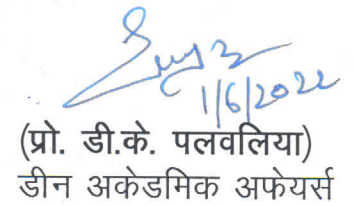 1/6/2022
(प्रो. डी.के. पलवलिया)
डीन अकेडमिक अफेयर्स